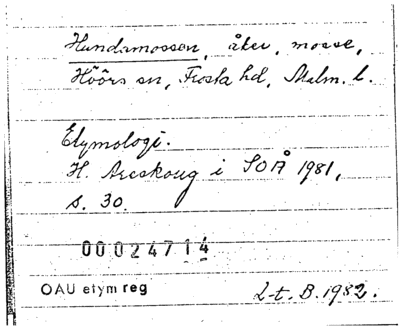 Hundamossen, åker, mosse,
Höörs sn, Frosta hd, Malm. l.
Etymologi.
H. Areskoug i SOÅ 1981,
s. 30.
00024714
OAU etym reg
L-t. B. 1982.